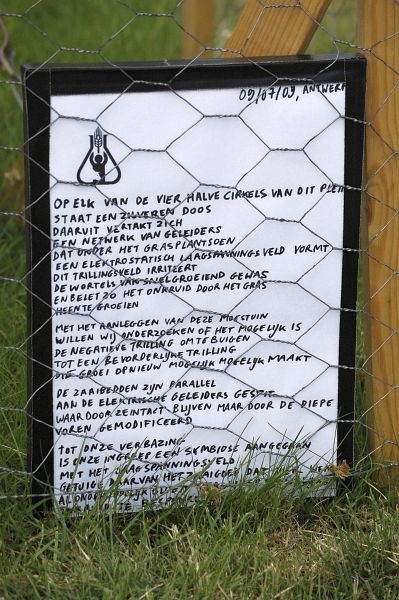 09/07/09, ANTWERP
OP ELK VAN DE VIER HALVE CIRKELS VAN DIT PLEIN
STAAT EEN ZILVEREN DOOS
DAARUIT VERTAKT ZICH
EEN NETWERK VAN GELEIDERS
DAT ONDER HET GRASPLANTSOEN
EEN ELEKTROSTATISCH LAAGSPANNINGSVELD VORMT
DIT TRILLINGSVELD IRRITEERT
DE WORTELS VAN SNELGROEIEND GEWAS
EN BELET ZO HET ONKRUID DOOR HET GRAS
HEEN TE GROEIEN
MET HET AANLEGGEN VAN DEZE MOESTUIN
WILLEN WIJ ONDERZOEKEN OF HET MOGELIJK IS
DE NEGATIEVE TRILLING OM TE BUIGEN
TOT EEN BEVORDERLIJKE TRILLING
DIE GROEI OPNIEUW MOGELIJK MOGELIJK MAAKT
DE ZAAIBEDDEN ZIJN PARALLEL
AAN DE ELEKTRISCHE GELEIDERS GESPIT
WAARDOOR ZE INTACT BLIJVEN MAAR DOOR DE DIEPE
VOREN GEMODIFICEERD
TOT ONZE VERBAZING
IS ONZE INGREEP EEN SYMBIOSE AANGEGAAN
MET HET LAAGSPANNINGSVELD
GETUIGE DAARVAN HET ZAAIGOED DAT